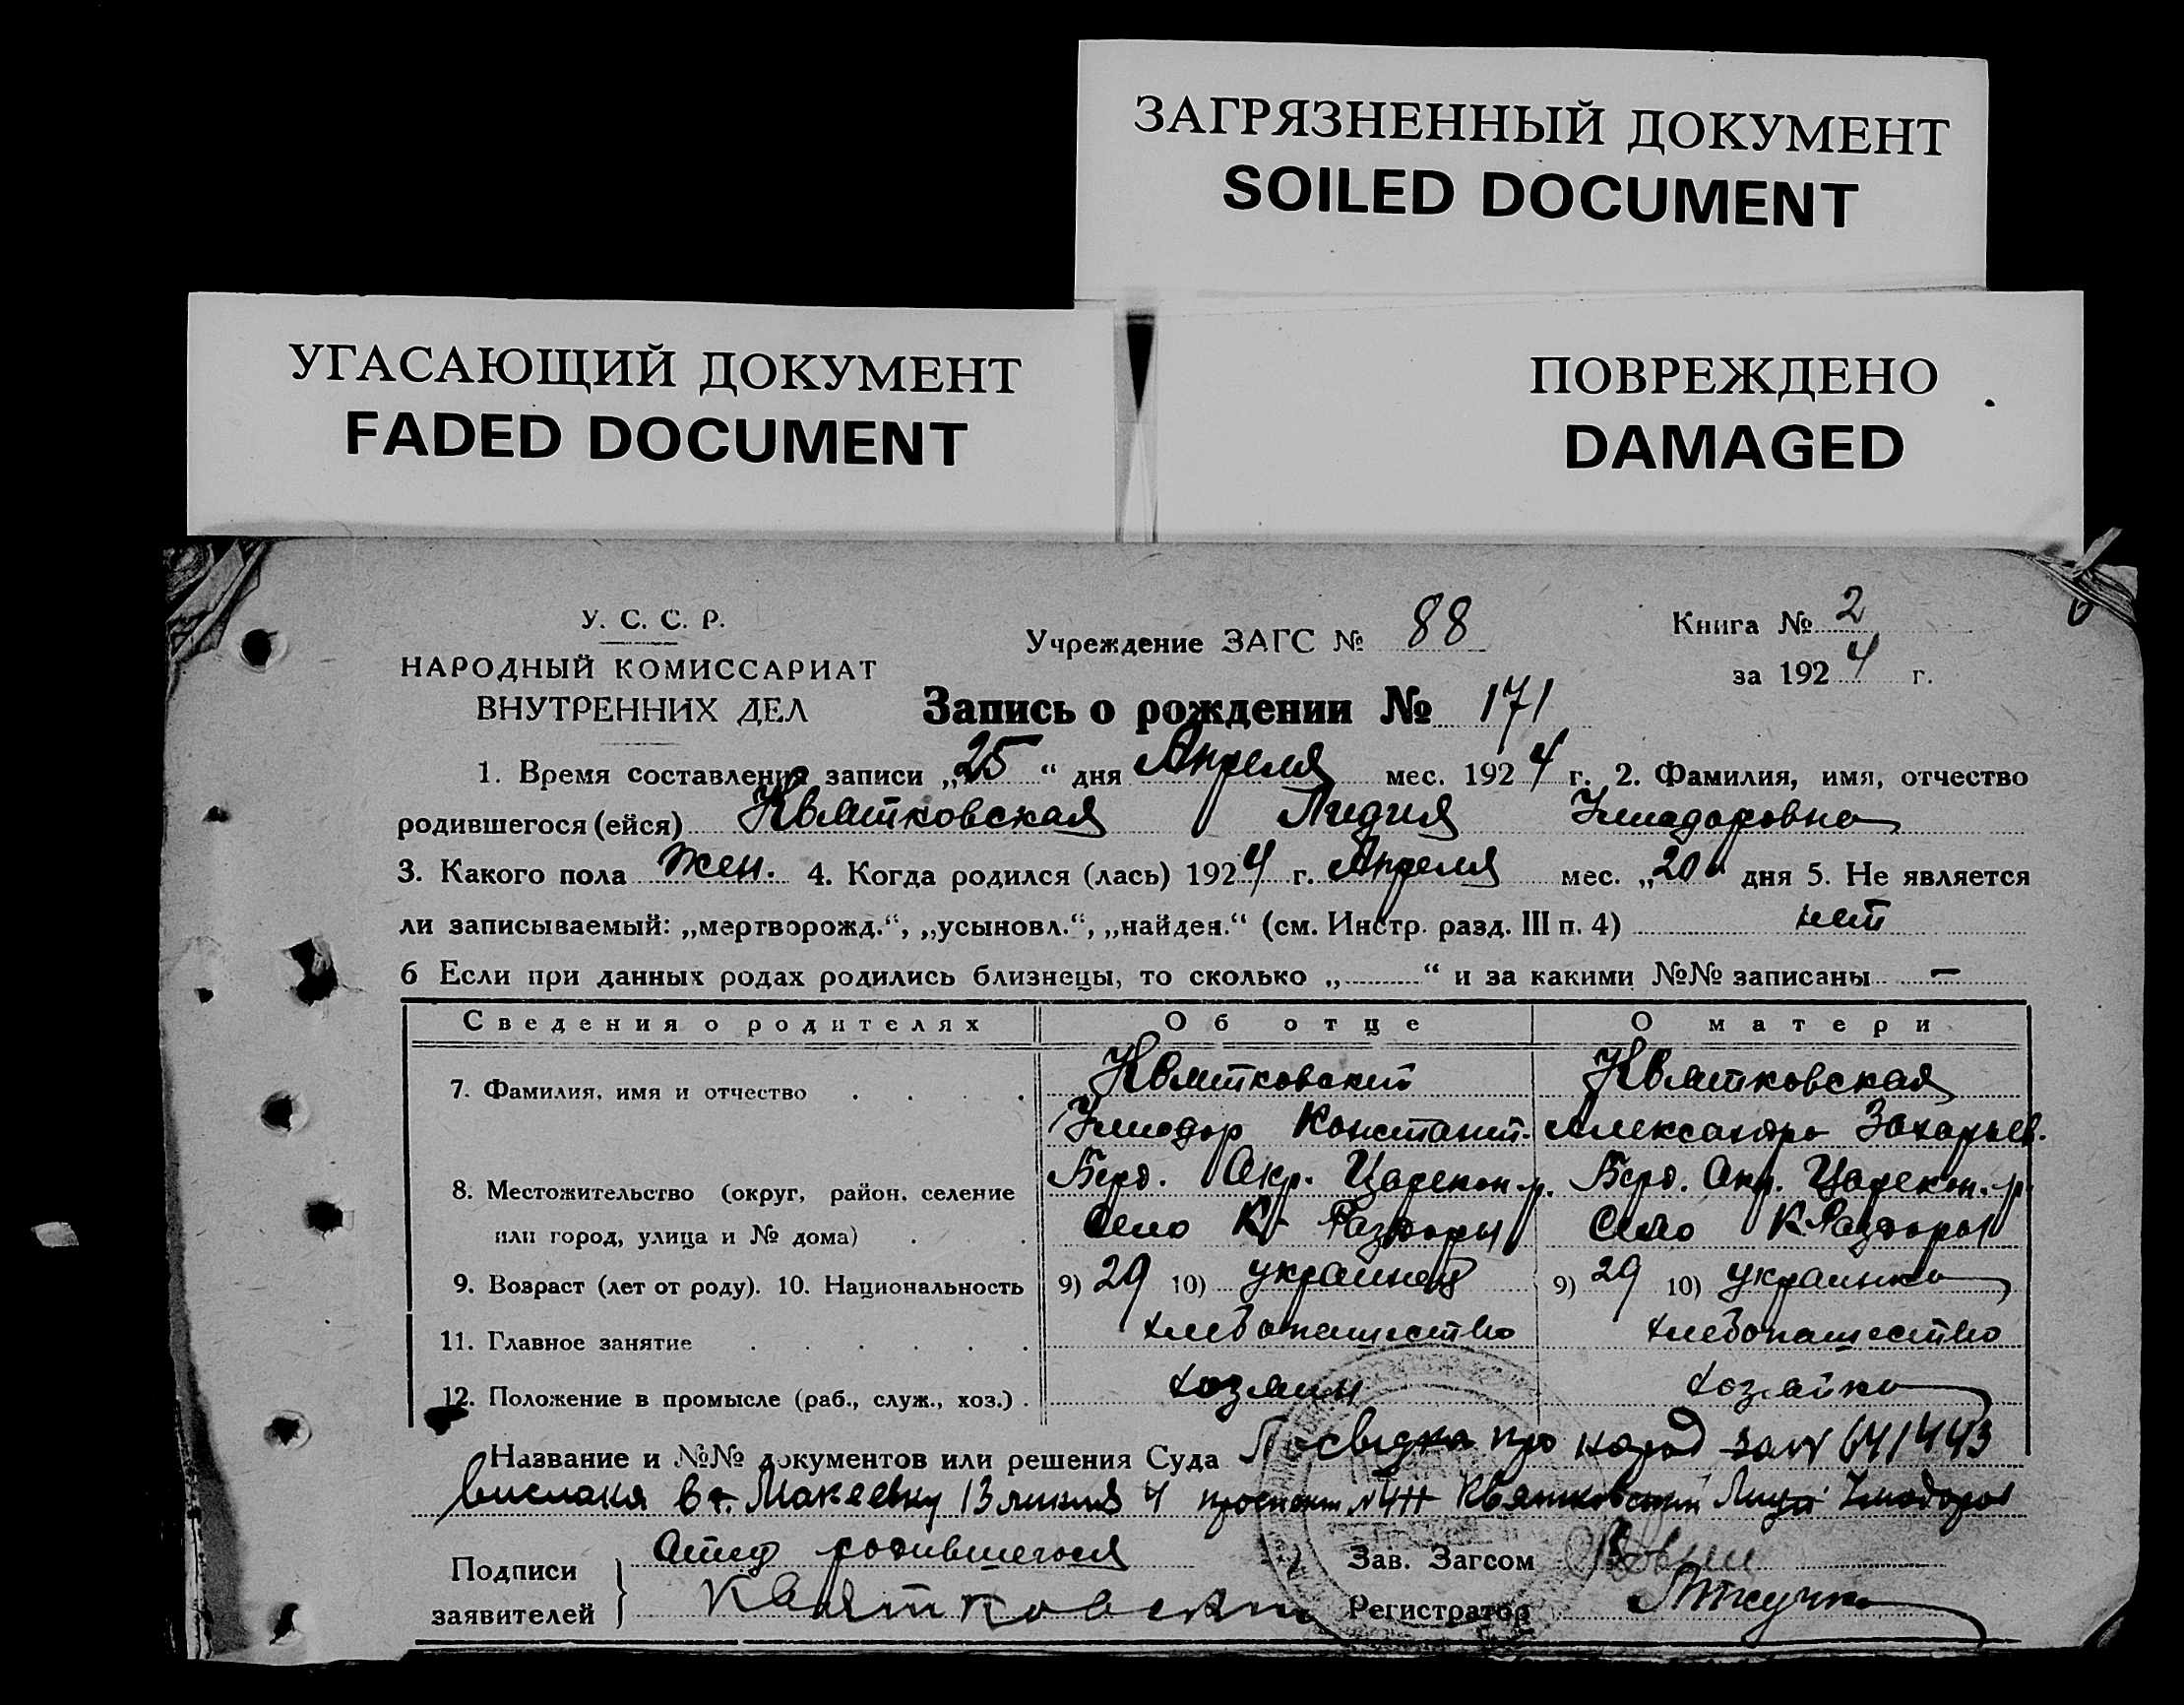 ЗАГРЯЗНЕННЫЙ ДОКУМЕНТ
SOILED DOCUMENT
УГАСАЮЩИЙ ДОКУМЕНТ
FADED DOCUMENT
ПОВРЕЖДЕНО
DAMAGED
У. С. С. Р.
НАРОДНЫЙ КОМИССАРИАТ
ВНУТРЕННИХ ДЕЛ
Учреждение ЗАГС № 88
Книга № 2
за 1924 г.
Запись о рождении № 171
1. Время составления записи „25“ дня Апреля мес. 1924 г. 2. Фамилия, имя, отчество
родившегося (ейся) Квятковская Лидия
3. Какого пола Жен. 4. Когда родился (лась) 1924 г. Апреля мес. „20“ дня 5. Не является
ли записываемый: „мертворожд.“, „усыновл.“, „найден.“ (см. Инстр. разд. III п. 4) нет
6 Если при данных родах родились близнецы, то сколько „ “ и за какими №№ записаны —
Сведения о родителях Об отце О матери
7. Фамилия, имя и отчество Квятковский Квятковская
Констант. Александра Захарьев.
8. Местожительство (округ, район, селение Берд. Окр. Царекон. р. Берд. Окр. Царекон. р.
или город, улица и № дома) Село К Раздоры Село К Раздоры
9. Возраст (лет от роду). 10. Национальность 9) 29 10) украинец 9) 29 10) украинка
11. Главное занятие хлебопашество хлебопашество
12. Положение в промысле (раб., служ., хоз.) хозяин хозяйка
Название и №№ документов или решения Суда Посвидка про народ за № 641443
вислана в г. Макеевку 13 линия 4 проспект Квятковский
Подписи заявителей
отец родившегося
Квятковский
Зав. Загсом
Регистратор